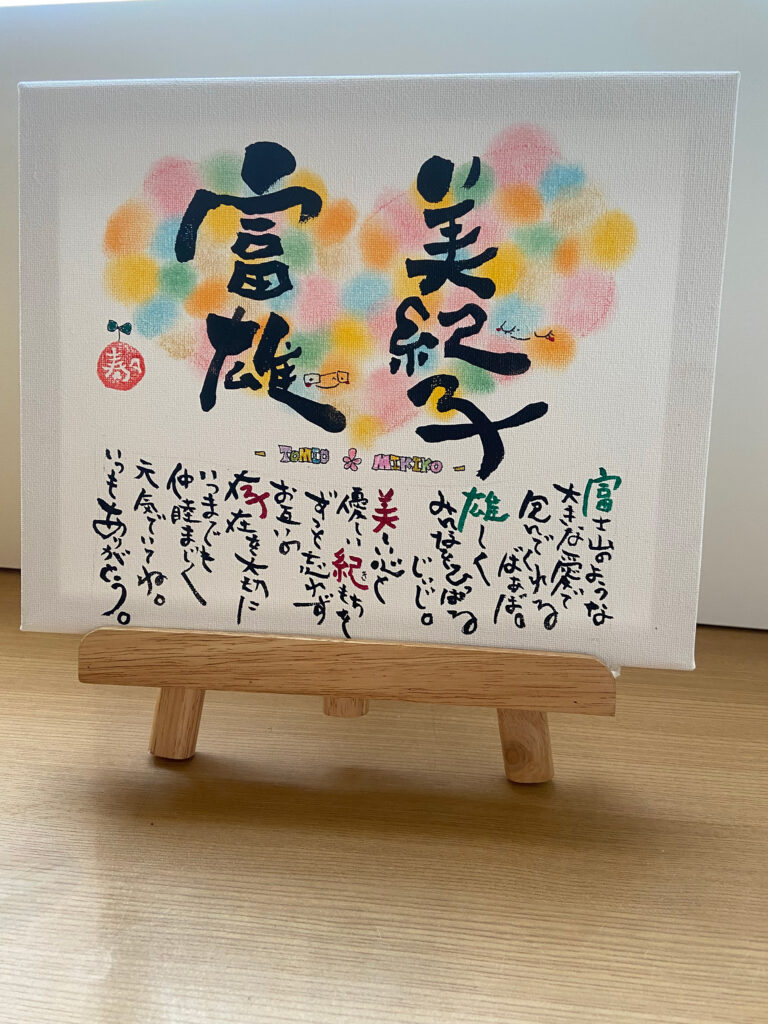 富雄
美紀子
- TOMIO ✽ MIKIKO -
富士山のような
大きな愛で
包んでくれる
ばぁば。
雄しく
みんなをひっぱる
じぃじ。
美しい心と
優しい紀もちを
き
ずっと忘れず
お互いの
存在を大切に
いつまでも
仲睦まじく
元気でいてね。
いつもありがとう。